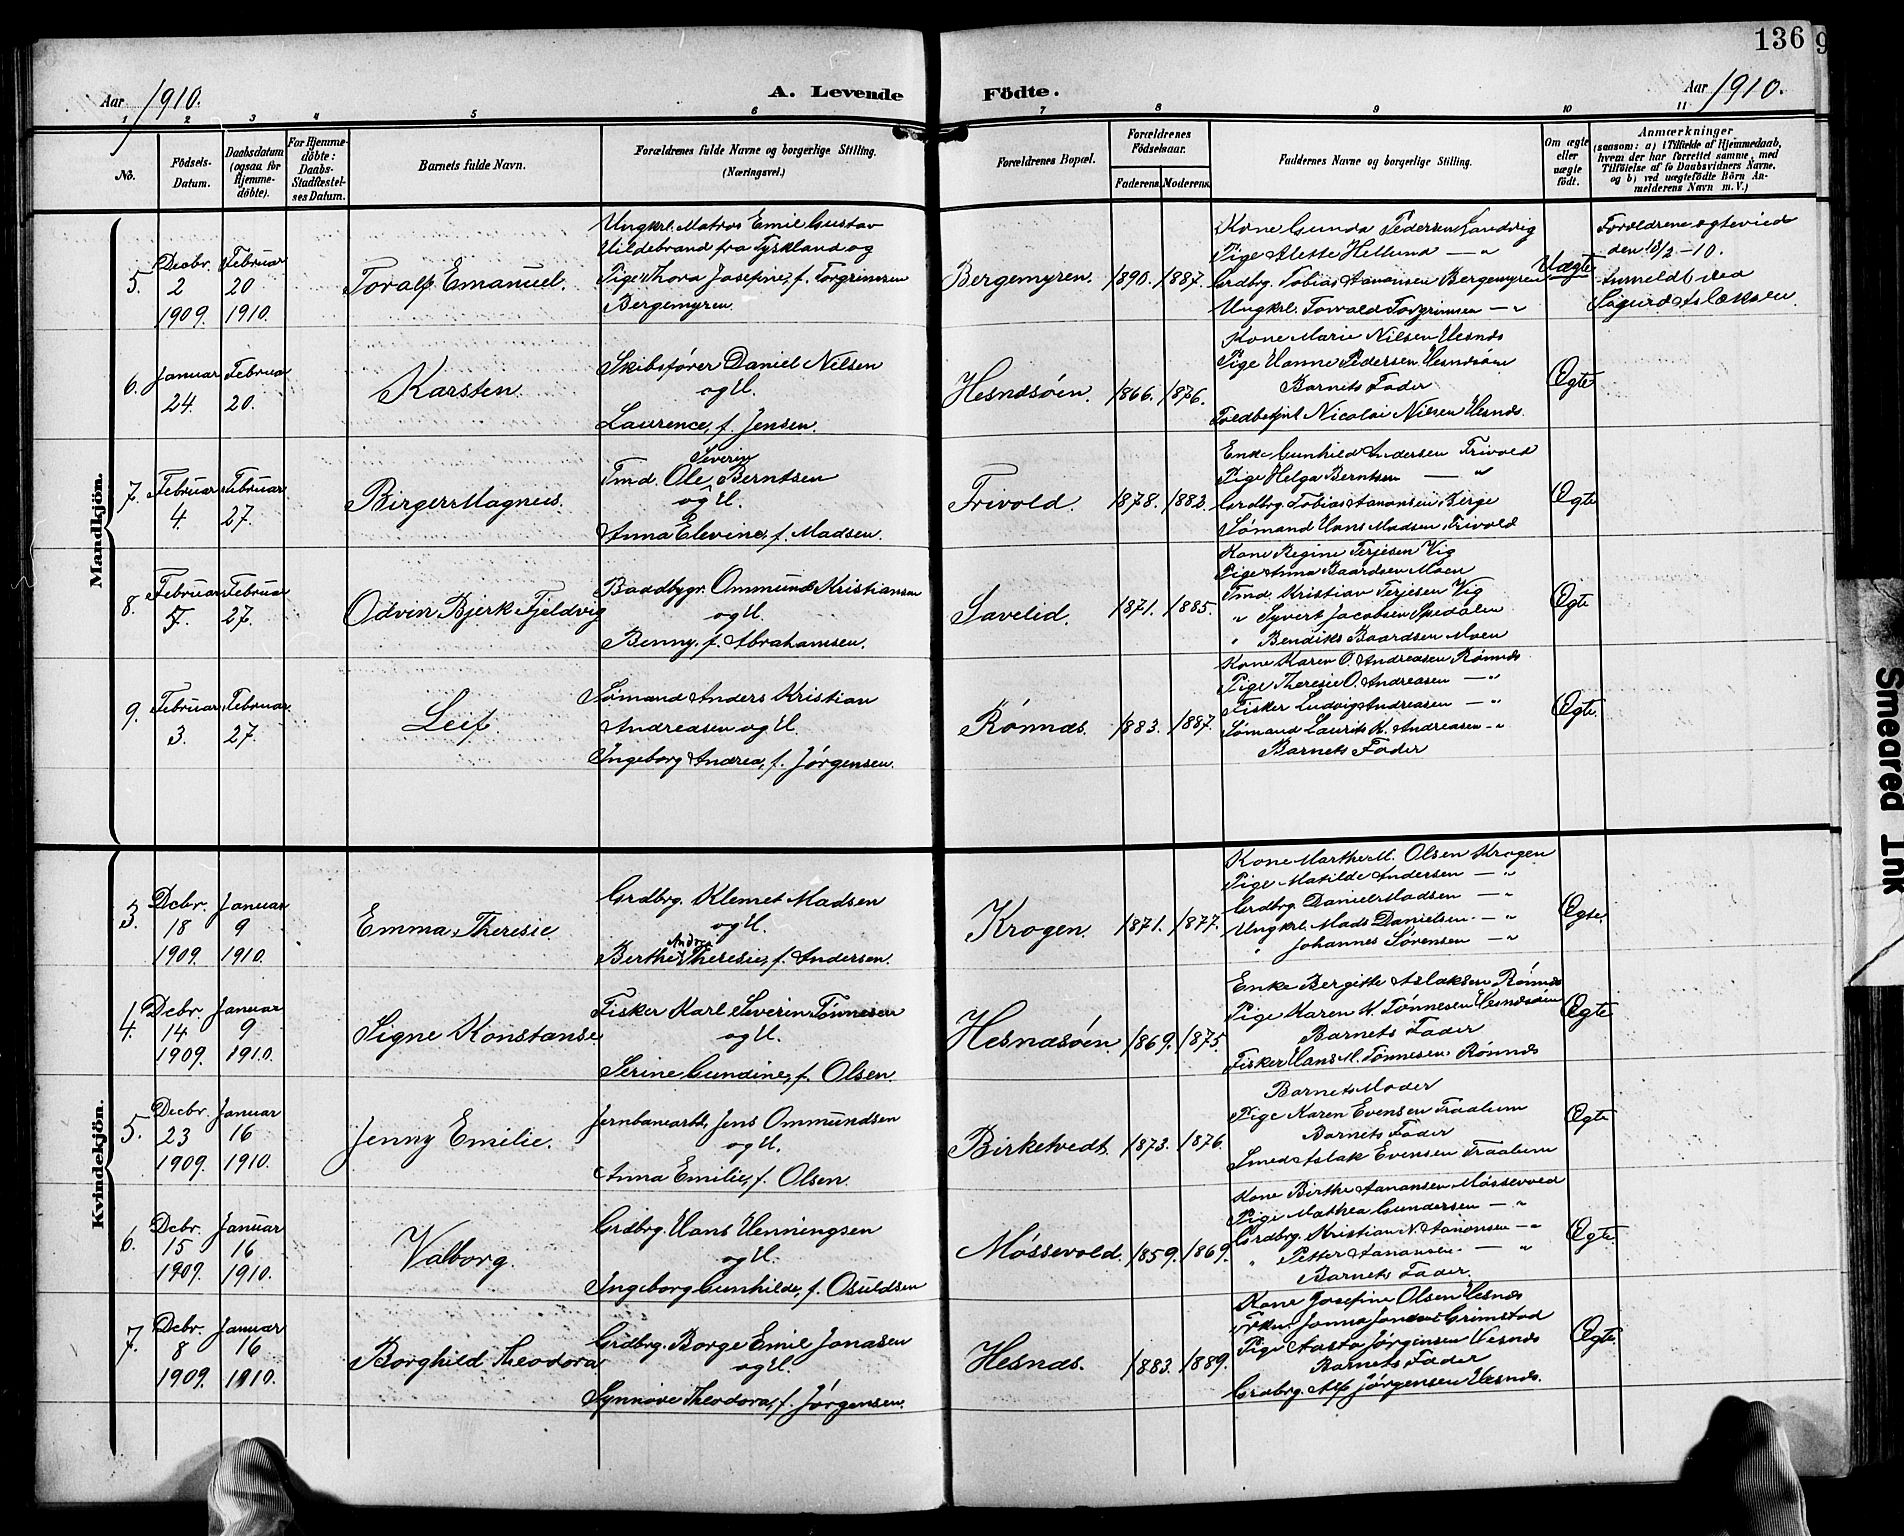 136
Aar 1910.
A. Levende Födte.
Aar 1910.
1 2 3 4 5 6 7 8 9 10 11
No.
Födsels-Datum.
Daabsdatum (ogsaa for Hjemme-döbte).
For Hjemme-döbte: Daabs-Stadfæstel-ses Datum.
Barnets fulde Navn.
Forældrenes fulde Navne og borgerlige Stilling. (Næringsvei.)
Forældrenes Bopæl.
Forældrenes Födselsaar.
Faderens. Moderens.
Faddernes Navne og borgerlige Stilling.
Om ægte eller uægte födt.
Anmærkninger
(saasom: a) i Tilfælde af Hjemmedaab, hvem der har forrettet samme, med Tilföielse af to Daabsvidners Navne, og b) ved uægtefödte Börn An-melderens Navn m. V.)
Mandkjön.
5. Decbr. 2 1909. Februar 20 1910.
Toralf Emanuel.
Ungkrl. Matros Emil Gustav
Hildebrand fra Tyskland og
Pige Thora Josefine, f. Torgrimsen
Bergemyren.
Bergemyren. 1890. 1887.
Kone Gunda Pedersen Landvig
Pige Alette Hellund — "
Grdbrg. Tobias Aanonsen Bergemyren
Ungkrl. Torvald Torgrimsen — "
Uægte
Forældrene ægteviede
den 13/2-10.
Anmeldt ved
Sigurd Aslaksen.
6. Januar 24. Februar 20.
Karsten.
Skibsfører Daniel Nilsen
og H.
Laurence, f. Jensen.
Hesnæsöen. 1866. 1876.
Kone Marie Nilsen Hesnæs
Pige Hanne Pedersen Hesnæsöen
Barnets Fader
Nicolai Nilsen Hesnæs.
Ægte
7. Februar 4. Februar 27.
Birger Magnus.
Severin
Tmd. Ole Berntsen
og H.
Anna Elevine, f. Madsen.
Frivold. 1878. 1883.
Enke Gunhild Andersen Frivold
Pige Helga Berntsen — "
Grdbrg. Tobias Aanonsen, Berge
Sømand Hans Madsen, Frivold
Ægte
8. Februar 5. Februar 27.
Odvin Bjerk Fjeldvig
Baadbygr. Ommund Kristiansen
og H.
Benny, f. Abrahamsen.
Savelid. 1871. 1885.
Kone Regine Terjesen Vig
Pige Anna Baardsen Moen
Tmd. Kristian Terjesen Vig
" Syvert Jacobsen Spedalen
" Bendiks Baardsen Moen
Ægte
9. Februar 3. Februar 27.
Leif.
Sømand Anders Kristian
Andreasen og H.
Ingeborg Andrea, f. Jørgensen.
Rönnæs. 1883. 1887.
Kone Karen O. Andreasen Rönnæs
Pige Theresie O. Andreasen — "
Fisker Ludvig Andreasen — "
Sømand Laurits K. Andreasen — "
Barnets Fader
Ægte.
Kvindekjön.
3. Decbr. 18 1909. Januar 9 1910.
Emma Theresie
Grdbrg. Klemet Madsen
og H.
Andrea
Berthe Theresie, f. Andersen.
Krogen. 1871. 1877.
Kone Marthe M. Olsen Krogen
Pige Matilde Andersen — "
Grdbrg. Daniel Madsen — "
Ungkrl. Mads Danielsen — "
" Johannes Sørensen — "
Ægte.
4. Decbr. 14 1909. Januar 9 1910.
Signe Konstanse
Fisker Karl Severin Tönnesen
og H.
Serine Gundine, f. Olsen.
Hesnæsöen. 1869. 1875.
Enke Bergitte Aslaksen Rönnæs
Pige Karen K. Tönnesen Hesnæsöen
Barnets Fader
Fisker Hans M. Tönnesen, Rönnæs
Ægte
5. Decbr. 23 1909. Januar 16 1910.
Jenny Emilie.
Jernbanearb. Jens Ommundsen
og H.
Anna Emilie, f. Olsen.
Birketvedt. 1873. 1876.
Barnets Moder
Pige Karen Evensen Traalum
Barnets Fader
Smed Aslak Evensen Traalum
Ægte
6. Decbr. 15 1909. Januar 16 1910.
Valborg.
Grdbrg. Hans Henningsen
og H.
Ingeborg Gunhilde, f. Osuldsen
Mössevold. 1859. 1869.
Kone Birthe Aanonsen Mössevold
Pige Mathea Gundersen — "
Grdbrg. Kristian N. Aanonsen — "
" Petter Aanonsen — "
Barnets Fader.
Ægte.
7. Decbr. 8 1909. Januar 16 1910.
Borghild Theodora
Grdbrg. Borge Emil Jonasen
og H.
Synnöve Theodora, f. Jörgensen.
Hesnæs. 1883. 1889.
Kone Josefine Olsen Hesnæs
Grimstad
Pige Aasta Jörgensen Hesnæs
Barnets Fader
Grdbrg. Alf Jörgensen Hesnæs.
Ægte.
Smeared Ink